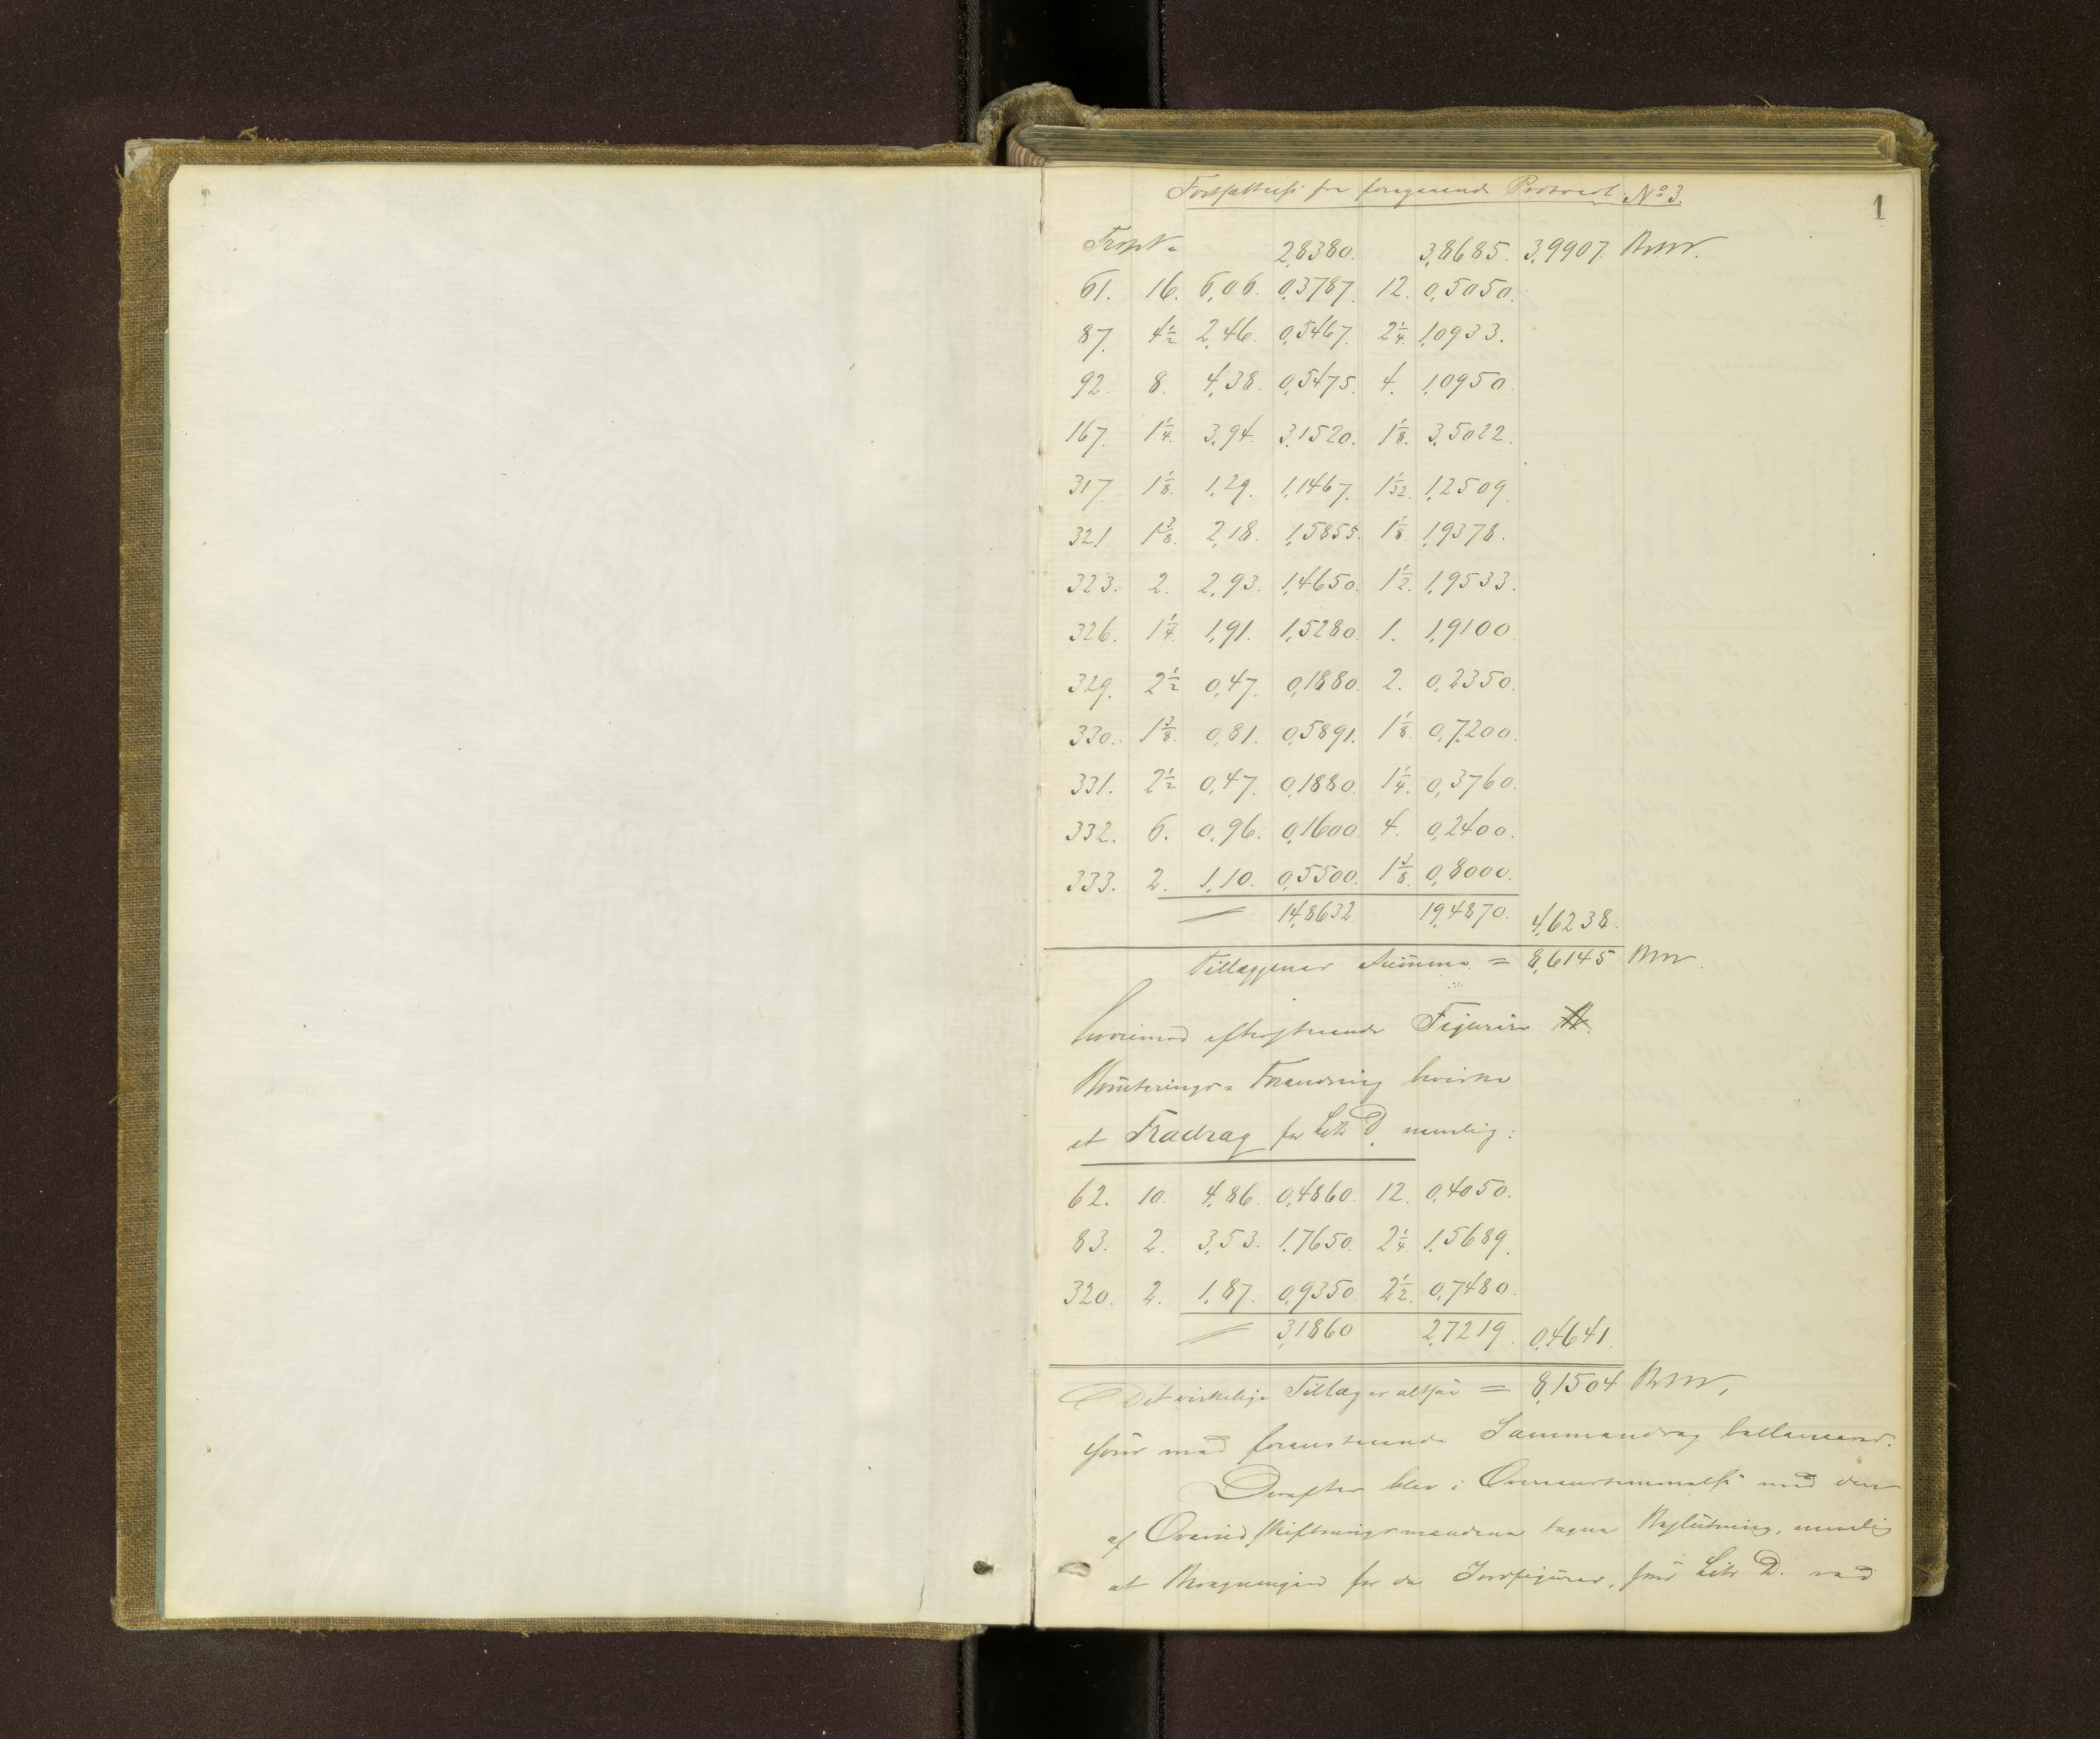 Fortsættelse fra foregaaende Protocol No 3.
1
Transp. 2,8380. 3,8685. 3,9907.
61. 16. 6,06. 0,3787. 12. 0,5050.
87. 4½ 2,46. 0,5467. 2¼. 1,0933.
92. 8. 4,38. 0,5475. 4. 1,0950.
167. 1¼. 3,94. 3,1520. 1⅛. 3,5022.
317. 1⅛. 1,29. 1,1467. 1 1/32. 1,2509.
321. 1⅜. 2,18. 1,5855. 1⅛. 1,9378.
323. 2. 2,93. 1,4650. 1½. 1,9533.
326. 1¼. 1,91. 1,5280. 1. 1,9100.
329. 2½ 0,47. 0,1880. 2. 0,2350.
330. 1⅜. 0,81. 0,5891. 1⅛. 0,7200.
331. 2½ 0,47. 0,1880. 1¼. 0,3760.
332. 6. 0,96. 0,1600. 4. 0,2400.
333. 2. 1,10. 0,5500. 1⅜. 0,8000.
14,8632. 19,4870. 4,6238.
Tillæggenes Summa = 8,6145
hvorimod efterstaaende Figurers
Boniterings-Forandring hvirke
et Fradrag for Litr D, nemlig:
62. 10. 4,86. 0,4860. 12. 0,4050.
83. 2. 3,53. 1,7650. 2¼. 1,5689.
320. 2. 1,87. 0,9350. 2½. 0,7480.
3,1860. 2,7219. 0,4641.
Det virkelige Tillæg er altsaa = 8,1504
som med foranstaaende Sammandrag ballancerer.
Derefter blev i Overeensstemmelse med den
af Overudskiftningsmændene tagne Beslutning, nemlig
at Beregningen for de Jordfigurer, som Litr D. ved